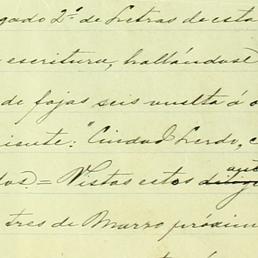 gado 2º de Letras de esta
escritura, hallándose
de fojas seis vuelta á o
"Ciudad Lerdo, c
= Vistos estos
tres de Marzo próxim